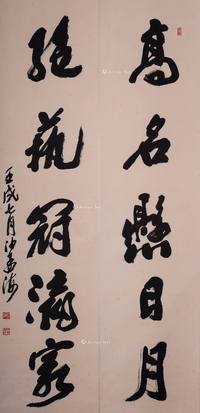 高名懸日月
絕藝冠瀛寰
壬戌七月沙孟海